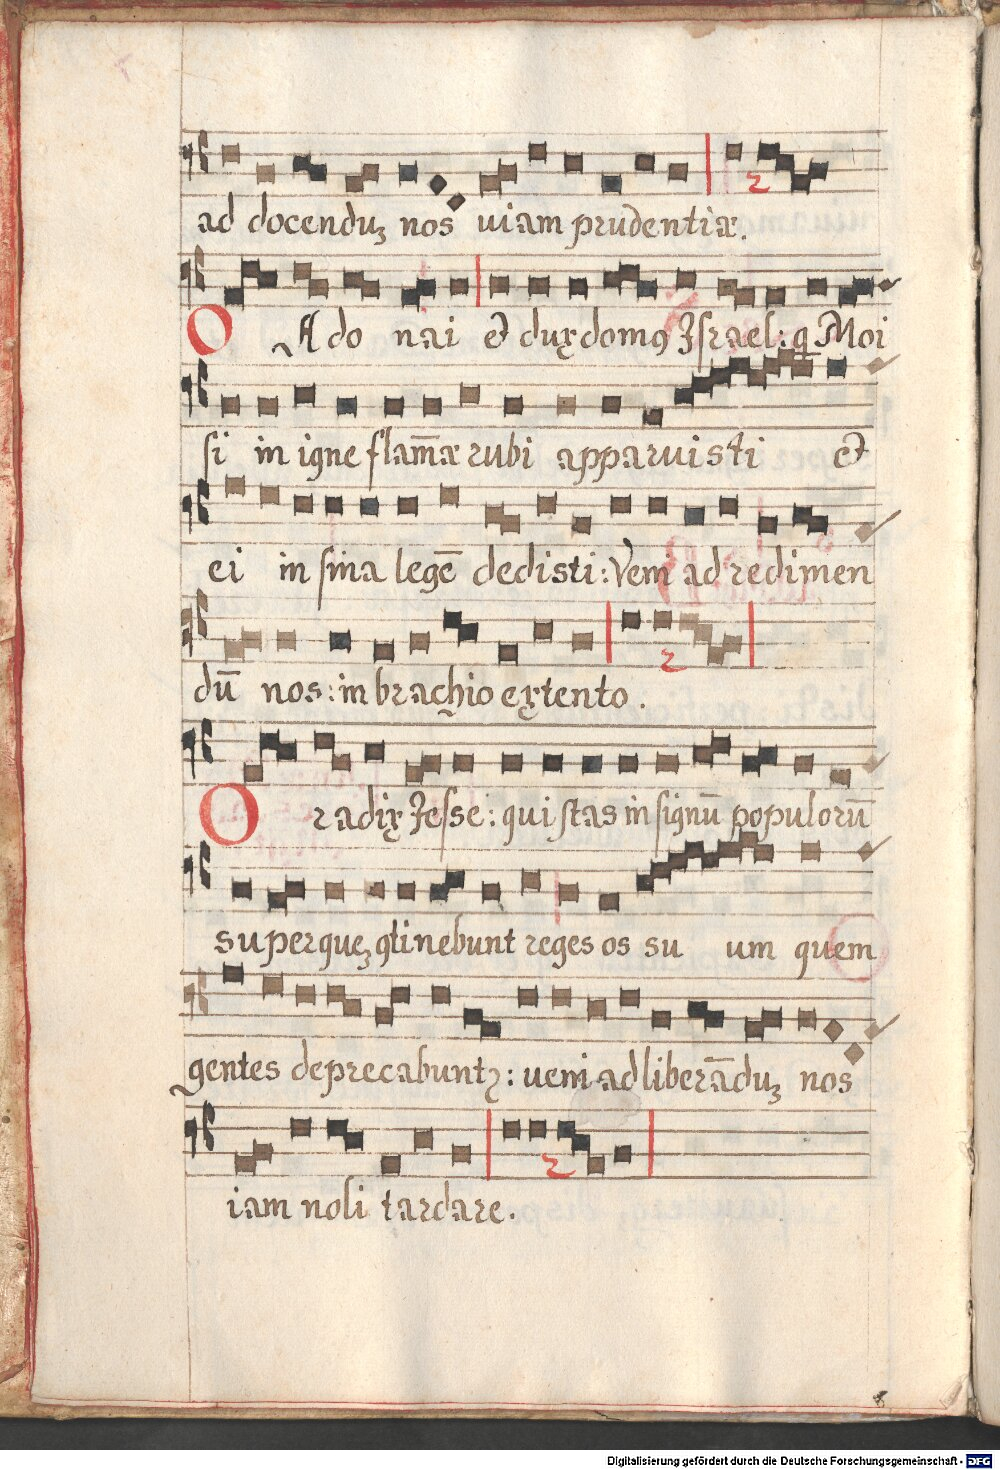 ad docenduꝫ nos uiam prudentiæ.
O Ado nai et dux domꝰ Israel: q̃ Moi
si in igne flam̄æ rubi apparuisti et
ei in sina legē dedisti: Veni ad redimen
dū nos: in brachio extento.
O radix Jesse: qui stas in signū populorū
super queꝫ ꝯtinebunt reges os su um quem
gentes deprecabuntꝫ: ueni ad liberāduꝫ nos
iam noli tardare.
Digitalisierung gefördert durch die Deutsche Forschungsgemeinschaft - DFG